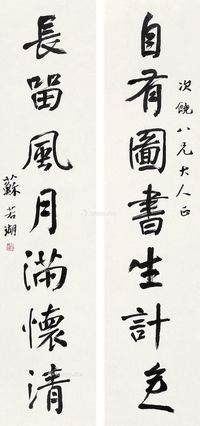 次饶八兄大人正
自有圖書生計足
長留風月滿懷清
蘇若瑚